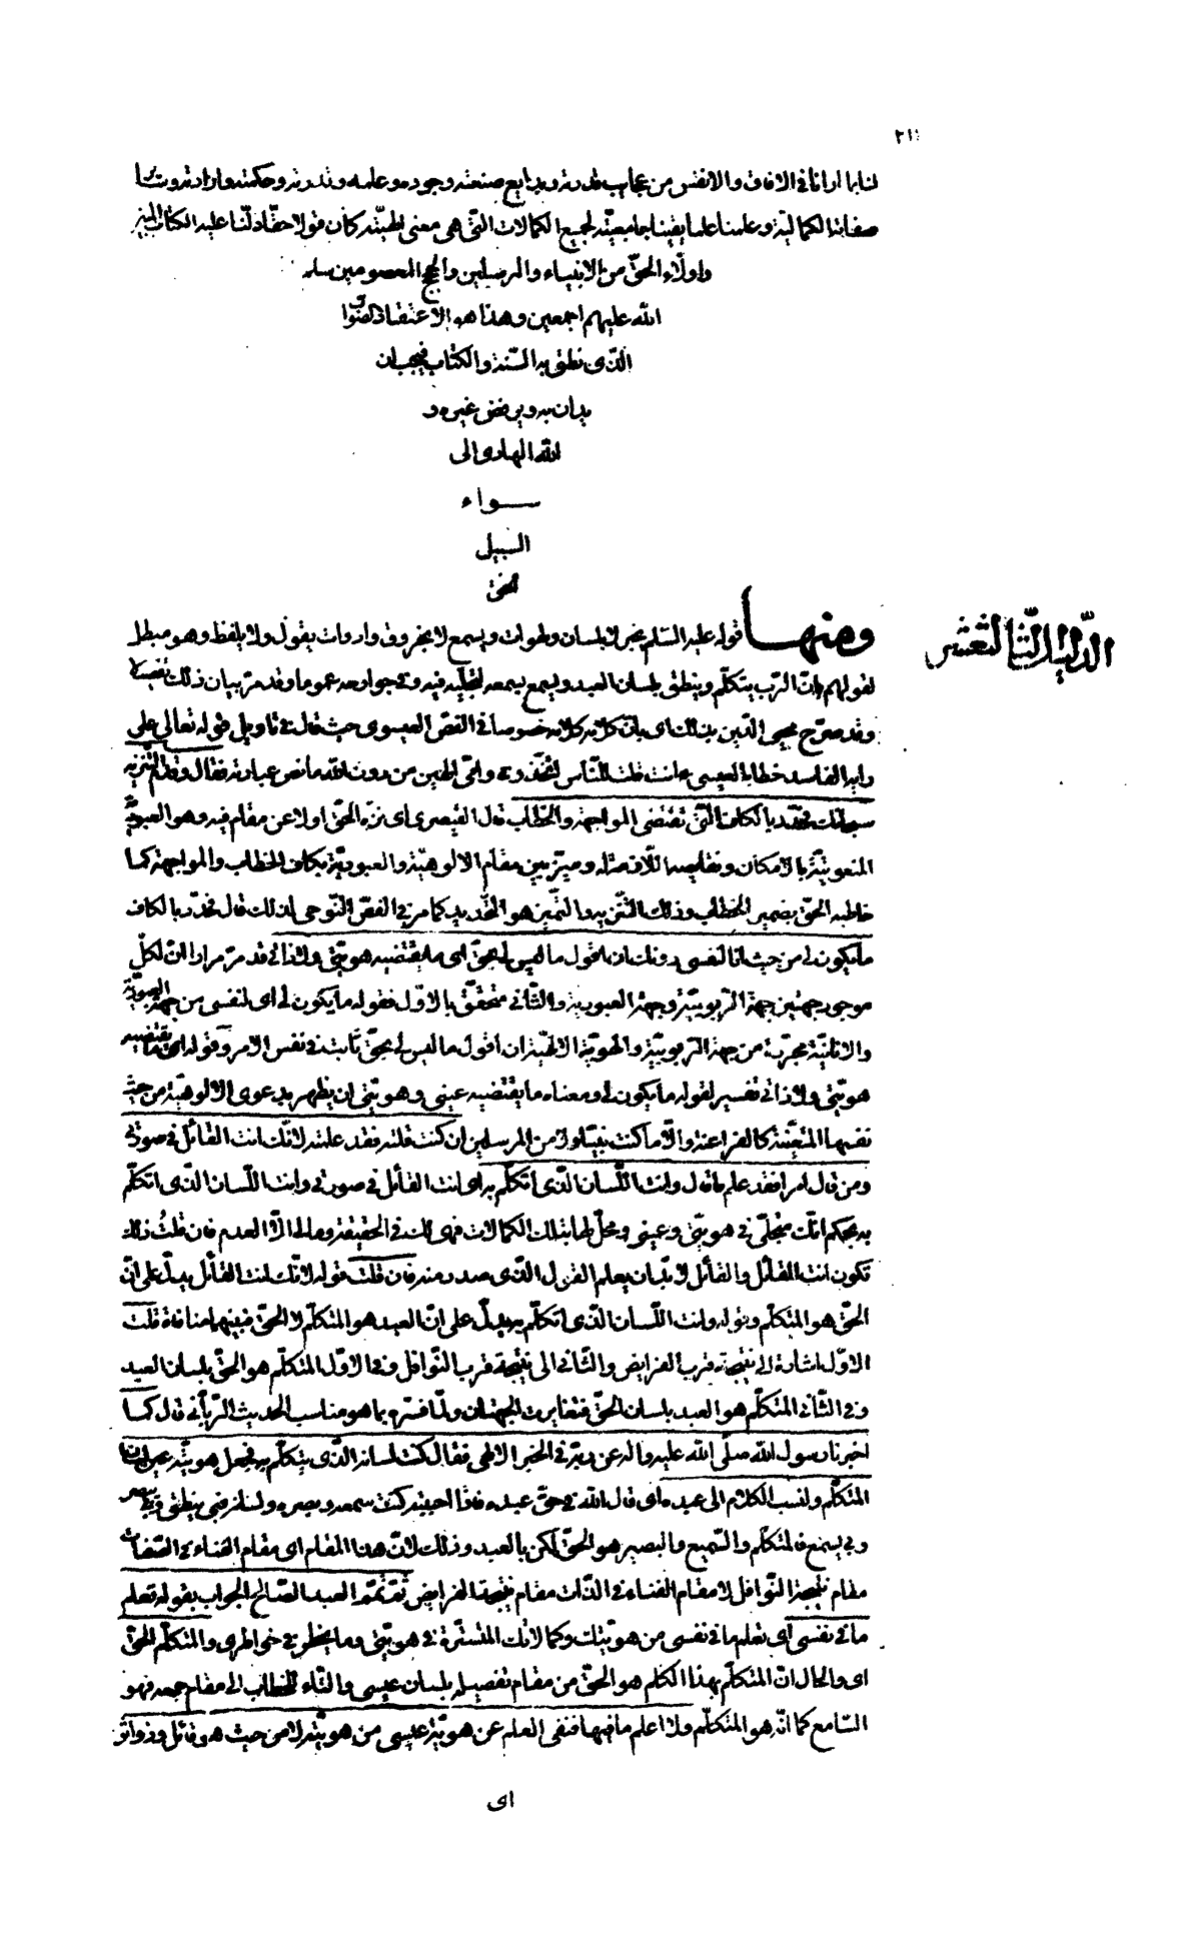 ٢١١
لنا بما ارانا فى الافاق والانفس من عجايب قدرته وبدايع صنعته وجوده وعلمه وقدرته وحكمته وارادته و
صفاته الكمالية وعلمنا علما يقينا جامعيته لجميع الكمالات التى هى معنى الهيته كان قولا حقا دلنا عليه الكتاب المنير
واولاء الحق من الانبياء والمرسلين والحجج المعصومين سلم
الله عليهم اجمعين وهذا هو الاعتقاد
الذى نطق به السنة والكتاب فيجب ان
يدان به ويرفض غيره و
الله الهادى الى
سواء
السبيل
الدليل الثالث عشر
ومنها قوله عليه السلم يخبر لا بلسان ولهوات ويسمع لا بخروق وادوات يقول ولا يلفظ وهو مبطل
لقولهم بان الرب يتكلم وينطق بلسان العبد ويسمع بسمعه لتجليه فيه وفى جوارحه عموما وقد مر بيان ذلك تفصيلا
وقد صرح محيى الدين بذلك اى بان كلامه كلامه خصوصا فى الفص العيسوى حيث قال فى تاويل قوله تعالى على
رايه الفاسد خطابا لعيسى ءانت قلت للناس اتخذونى وامى الهين من دون الله ما نص عبارته فقال وقدم التنزيه
سبحانك فحدد بالكاف التى تقتضى المواجهة والخطاب قال القيصرى اى نزه الحق اولا عن مقام فيه وهو العبودية
المنعوتة بالامكان ونقايصها اللازمة له وميز بين مقام الالوهية والعبودية بكاف الخطاب والمواجهة كما
خاطبه الحق بضمير الخطاب وذلك التنزيه والتميز هو التحديد كما مر فى الفص النوحى لذلك قال فحدد بالكاف
ما يكون لى من حيث انا لنفسى دونك ان اقول ما ليس لى بحق اى ما يقتضيه هويتى ولا ذاتى قد مر مرارا ان لكل
موجود جهتين جهة الربوبية وجهة العبودية والثانى متحقق بالاول فقوله ما يكون لى اى لنفسى من جهة العبودية
والانانية مجردة من جهة الربوبية والهوية الالهية ان اقول ما ليس لى بحق ثابت فى نفس الامر وقوله اى ما يقتضيه
هويتى ولا ذاتى تفسير لقوله ما يكون لى ومعناه ما يقتضيه عينى وهويتى ان يظهر بدعوى الالوهية من حيث
نفسها المتعينة كالفراعنة والا ما كنت نبيا ولا من المرسلين ان كنت قلته فقد علمته لانك انت القائل فى صورتى
ومن قال امرا فقد علم ما قال وانت اللسان الذى اتكلم به اى انت القائل فى صورتى وانت اللسان الذى اتكلم
به بحكم انك متجلى فى هويتى وعينى ومحل لها بتلك الكمالات فهى لك فى الحقيقة وما لى الا العدم فان قلت ذلك
تكون انت القائل والقائل لا بد ان يعلم القول الذى صدر منه فان قلت قوله لانك انت القائل يدل على ان
الحق هو المتكلم وقوله وانت اللسان الذى اتكلم به يدل على ان العبد هو المتكلم لا الحق فبينهما منافاة قلت
الاول اشارة الى نتيجة قرب الفرايض والثانى الى نتيجة قرب النوافل وفى الاول المتكلم هو الحق بلسان العبد
وفى الثانى المتكلم هو العبد بلسان الحق فتغايرت الجهتان ولما فسره بما هو مناسب الحديث الربانى قال كما
اخبرنا رسول الله صلى الله عليه واله عن ربه فى الخبر الالهى فقال كنت لسانه الذى يتكلم به فجعل هويته عين لسان
المتكلم ونسب الكلام الى عبده اى قال الله فى حق عبده فاذا احببته كنت سمعه وبصره ولسانه فبى ينطق وبى يبصر
وبى يسمع فالمتكلم والسميع والبصير هو الحق لكن بالعبد وذلك لان هذا المقام اى مقام الفناء فى الصفات
مقام نتيجة النوافل لا مقام الفناء فى الذات مقام نتيجة الفرايض ثم تمم العبد الصالح الجواب بقوله تعلم
ما فى نفسى اى تعلم ما فى نفسى من هويتك وكمالاتك المستترة فى هويتى وما يخطر فى خواطرى والمتكلم الحق
اى والحال ان المتكلم بهذا الكلم هو الحق من مقام تفصيله بلسان عيسى والتاء للخطاب الى مقام جمعه فهو
السامع كما انه هو المتكلم ولا اعلم ما فيها فنفى العلم عن هوية عيسى من هويته لا من حيث هو قائل وذو اثر
اى